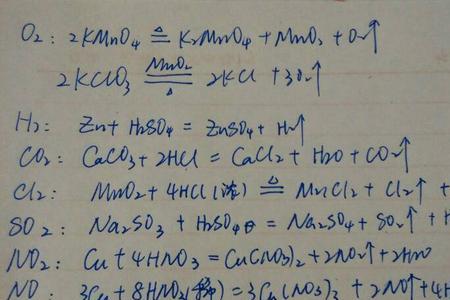 O₂: 2KMnO₄ ≜ K₂MnO₄ + MnO₂ + O₂↑
2KClO₃ =MnO₂/△= 2KCl + 3O₂↑
H₂: Zn + H₂SO₄ = ZnSO₄ + H₂↑
CO₂: CaCO₃ + 2HCl = CaCl₂ + H₂O + CO₂↑
Cl₂: MnO₂ + 4HCl(浓) ≜ MnCl₂ + Cl₂↑ +
SO₂: Na₂SO₃ + H₂SO₄ = Na₂SO₄ + SO₂↑ + H
NO₂: Cu + 4HNO₃ = Cu(NO₃)₂ + 2NO₂↑ + 2H₂O
NO: 3Cu + 8HNO₃(稀) = 3Cu(NO₃)₂ + 2NO↑ + 4H